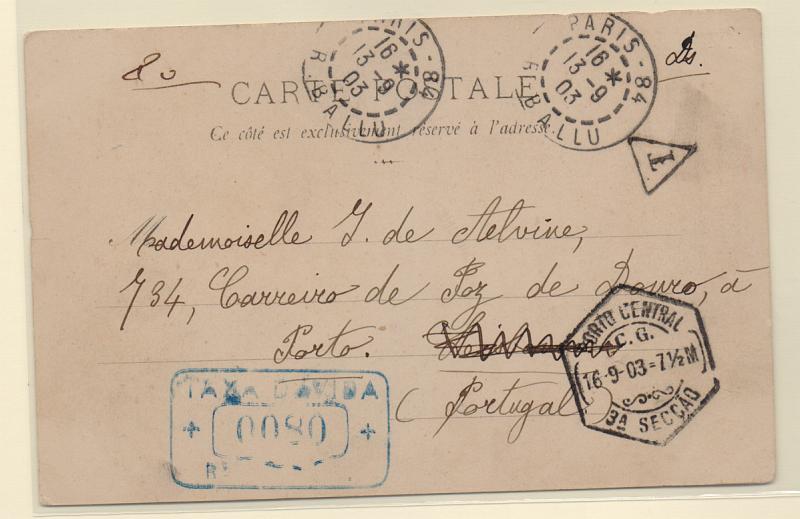 PARIS - 84
16 *
13 - 9
03
R. BALLU
PARIS - 84
16 *
13 - 9
03
R. BALLU
80
CARTE POSTALE
Ce côté est exclusivement réservé à l'adresse.
T
Mademoiselle J. de Aelvine,
734, Carreiro de Foz de Douro, à
Porto.
(Portugal)
PORTO CENTRAL
C. G.
16-9-03=7½M
3ª SECÇÃO
TAXA DEVIDA
+ 0080 +